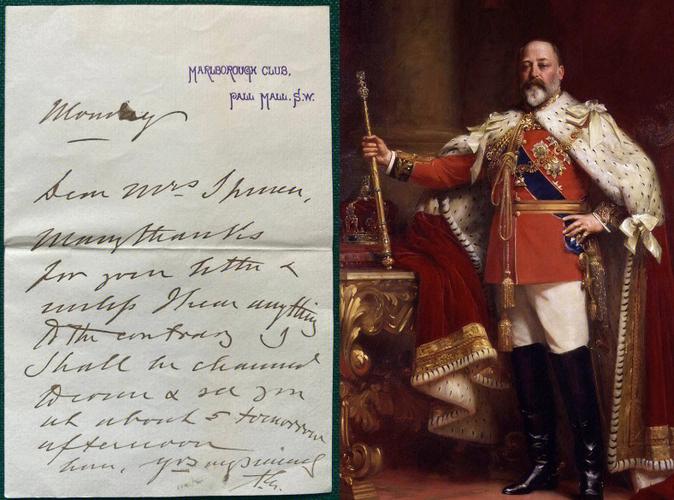 MARLBOROUGH CLUB,
PALL MALL. S.W.
Monday
Dear Mrs
Many thanks
for your letter &
unless I hear anything
to the contrary I
shall be charmed
to come & see you
at about 5 tomorrow
afternoon